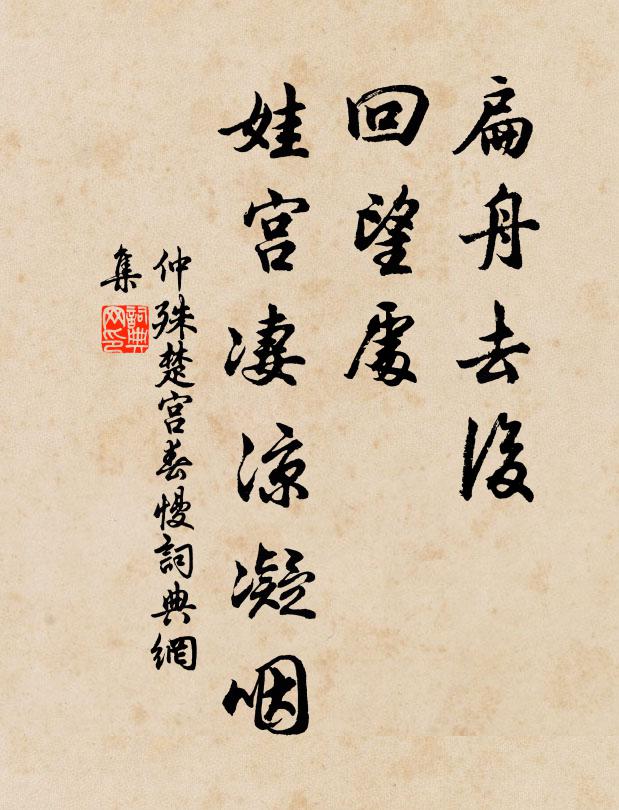 扁舟去後
回望處
娃宫淒涼凝咽
仲殊楚宫春慢詞典網
集
詞典
网印